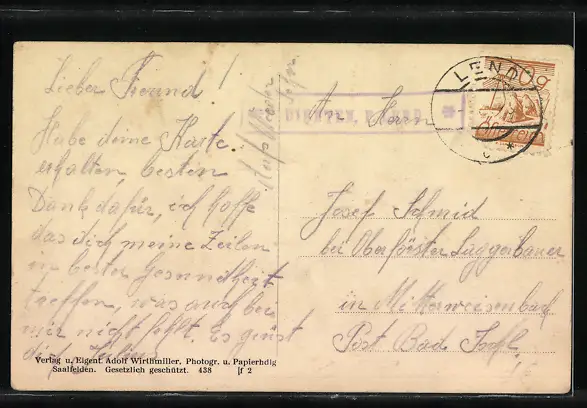 Lieber Freund!
Habe deine Karte
erhalten, besten
Dank dafür, ich hoffe
das dich meine Zeilen
in bester Gesundheit
treffen, was auch bei
mir nicht fehlt, Es grüst
dich
Verlag u. Eigent. Adolf Wirthmiller, Photogr. u. Papierhdlg
Saalfelden. Gesetzlich geschützt. 438 ʃf 2
DIENTEN,
LEND
An Herrn
Josef Schmid
bei Oberförster Luggerbauer
in Mitterweisenbach
Post Bad Ischl,